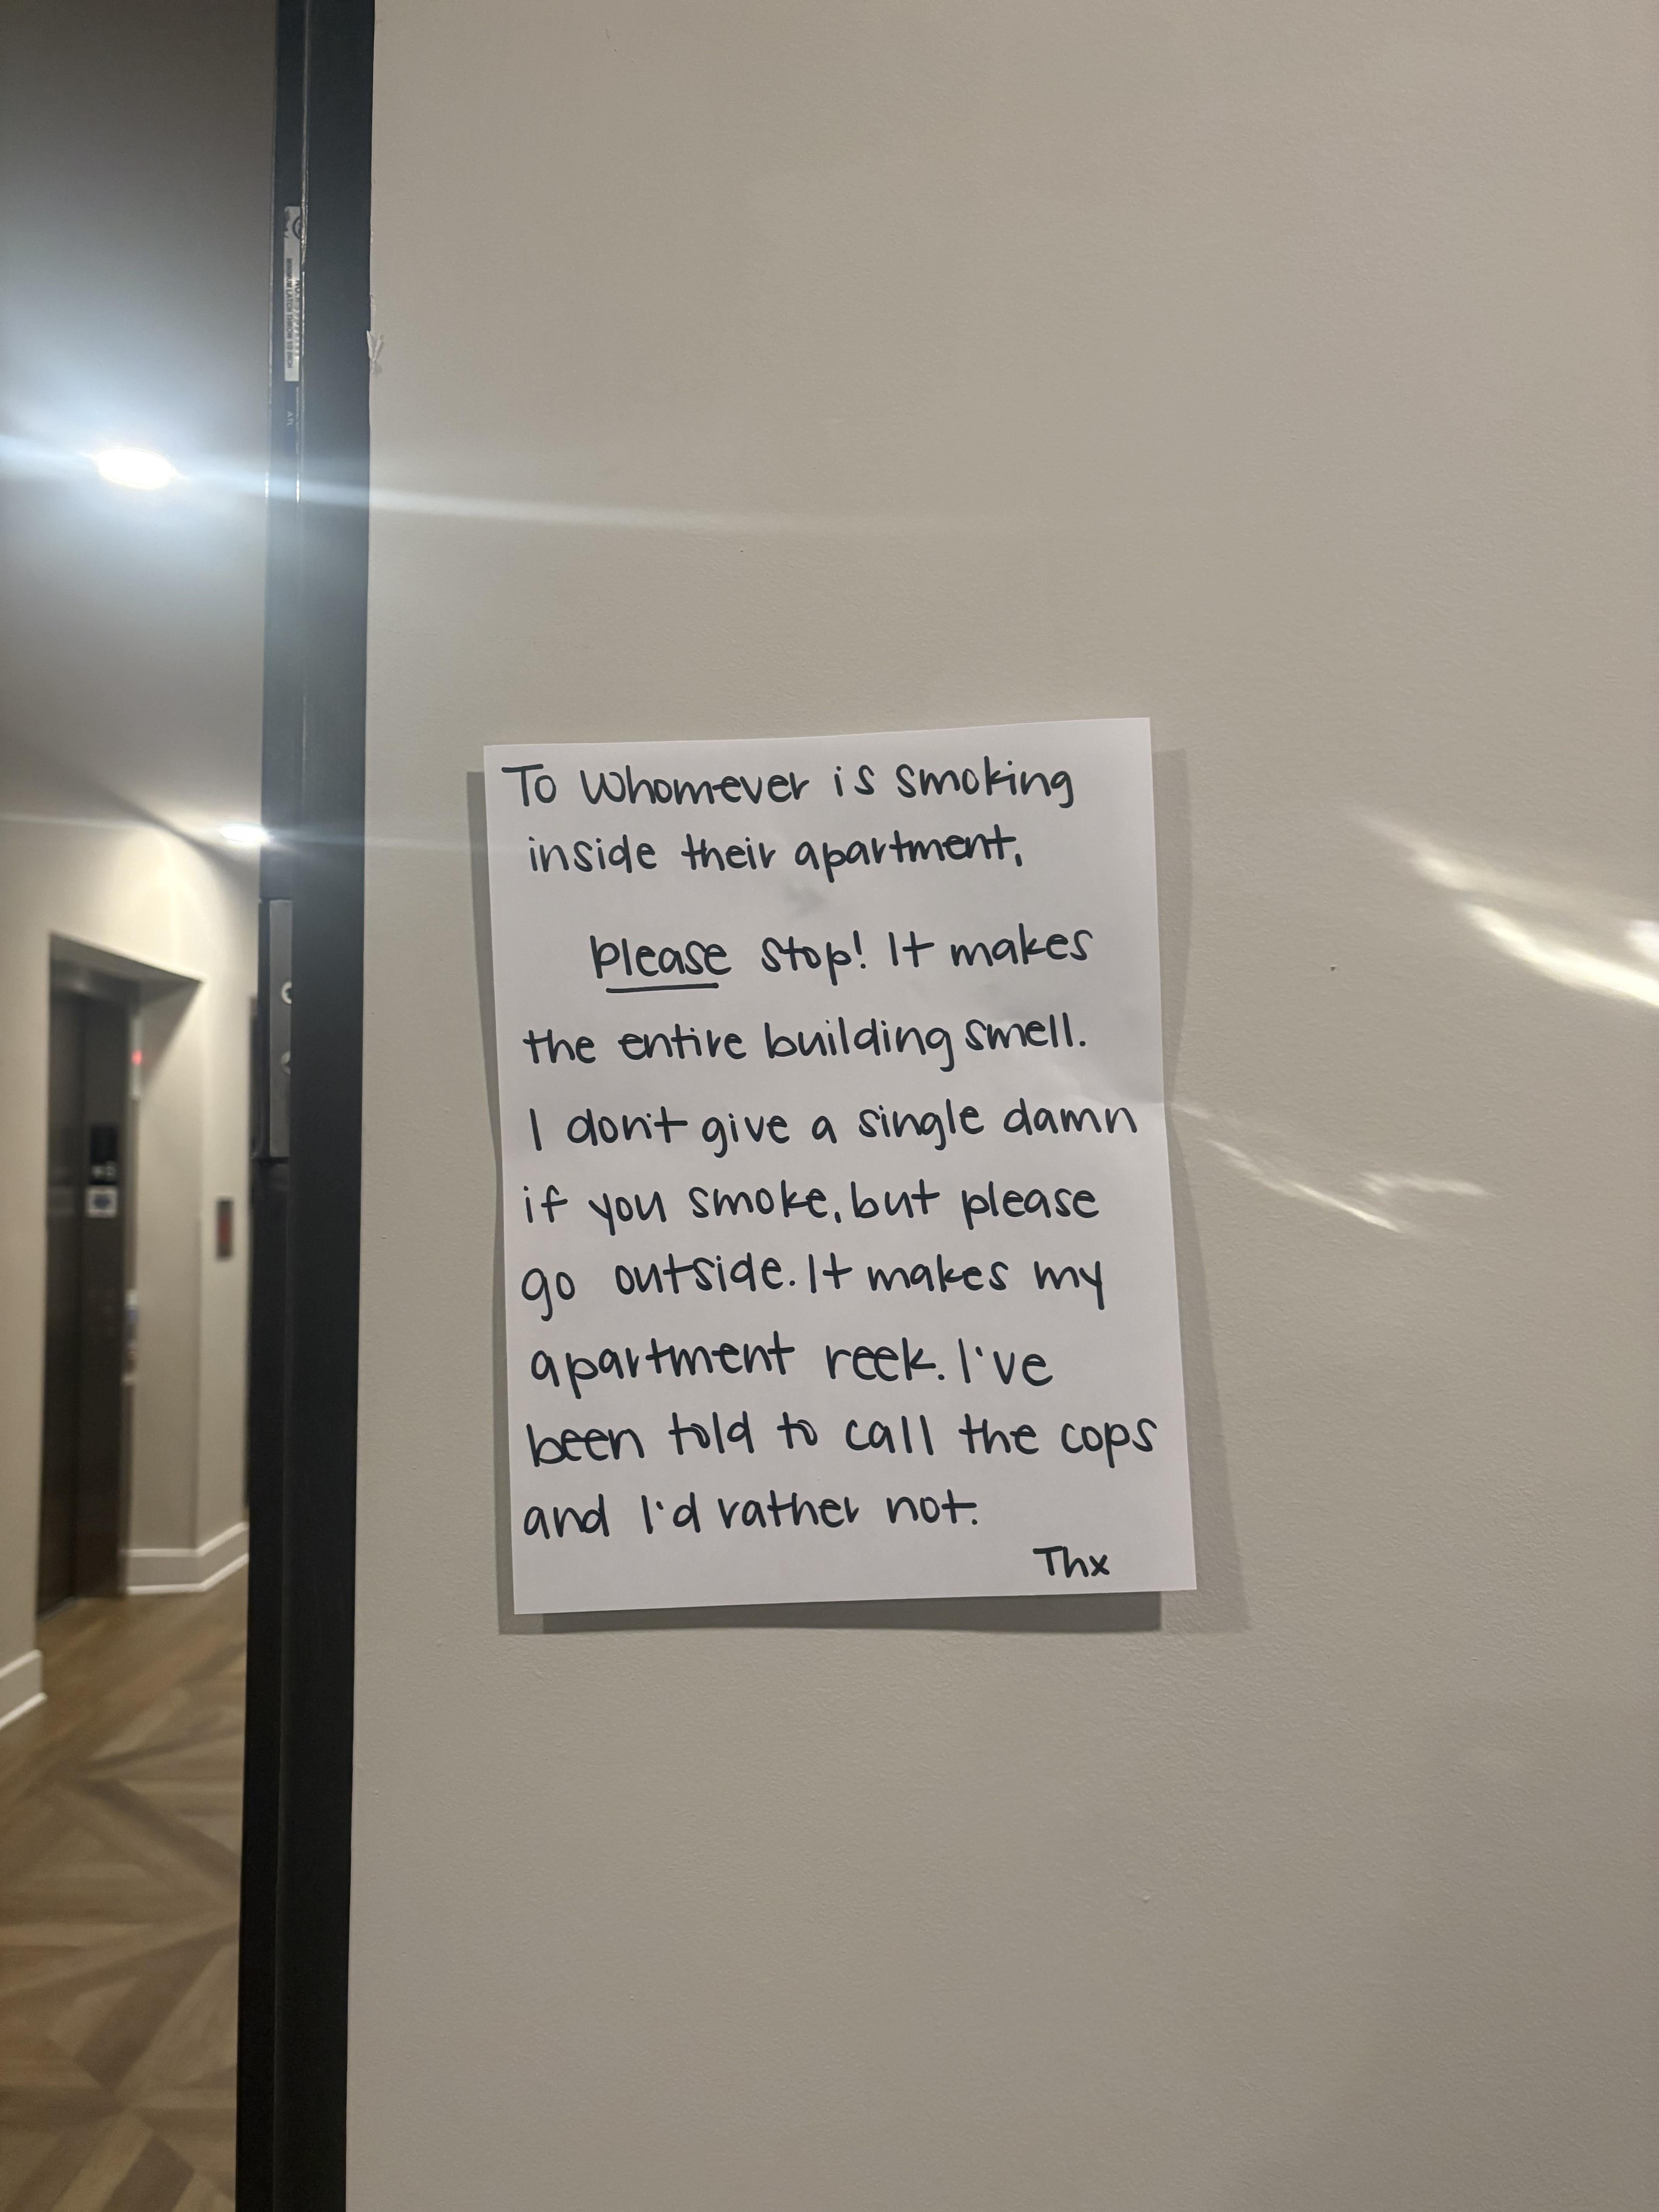 To Whomever is smoking
inside their apartment,
please stop! It makes
the entire building smell.
I don't give a single damn
if you smoke, but please
go outside. It makes my
apartment reek. I've
been told to call the cops
and I'd rather not.
Thx